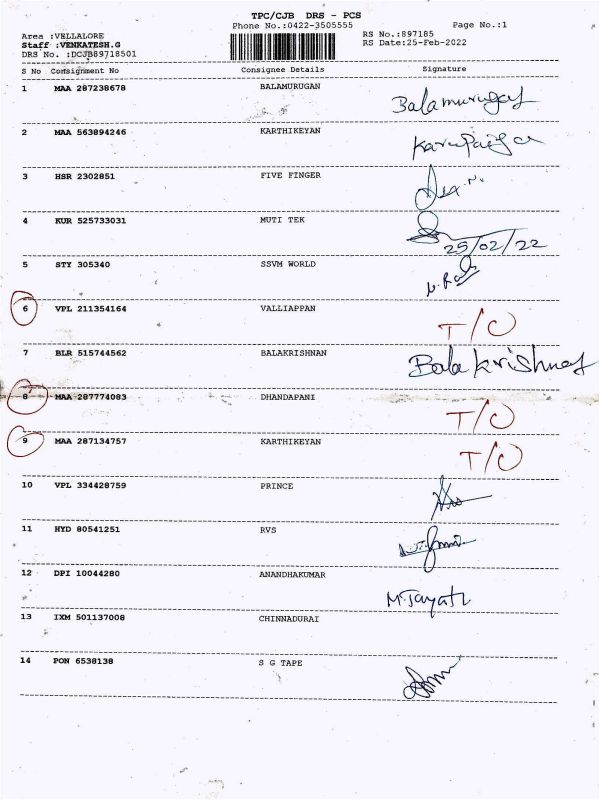 TPC/CJB DRS - PCS
Phone No.:0422-3505555 Page No.:1
Area :VELLALORE RS No.:897185
Staff :VENKATESH.G RS Date:25-Feb-2022
DRS No. :DCJB89718501
S No Consignment No Consignee Details Signature
1 MAA 287238678 BALAMURUGAN Balamurugan
2 MAA 563894246 KARTHIKEYAN
3 HSR 2302851 FIVE FINGER
4 KUR 525733031 MUTI TEK 25/02/22
5 STY 305340 SSVM WORLD
6 VPL 211354164 VALLIAPPAN T/O
7 BLR 515744562 BALAKRISHNAN Balakrishnan
8 MAA 287774083 DHANDAPANI T/O
9 MAA 287134757 KARTHIKEYAN T/O
10 VPL 334428759 PRINCE
11 HYD 80541251 RVS
12 DPI 10044280 ANANDHAKUMAR
13 IXM 501137008 CHINNADURAI
14 PON 6538138 S G TAPE